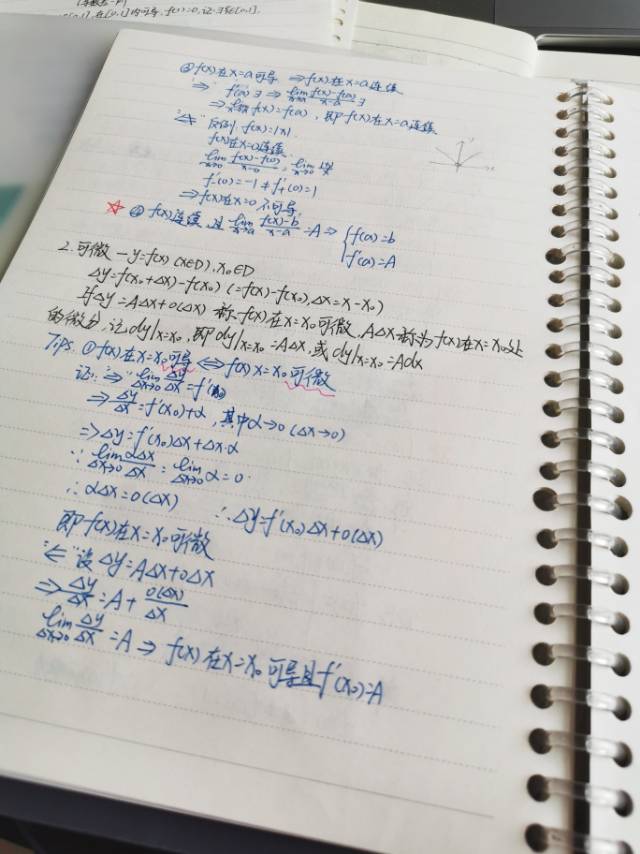 ③ f(x)在x=a可导 ⇒f(x)在x=a连续
"⇒" f'(a)∃ ⇒ lim x→a f(x)-f(a)/x-a ∃
⇒ lim x→a f(x)=f(a), 即f(x)在x=a连续
"⇍" 反例: f(x)=|x|
f(x)在x=0连续
lim x→0 f(x)-f(0)/x-0 = lim x→0 |x|/x
f'₋(0)=-1≠f'₊(0)=1
⇒f(x)在x=0不可导.
☆ ④ f(x)连续, 且 lim x→a f(x)-b/x-a =A⇒ { f(a)=b
f'(a)=A
2.可微—y=f(x)(x∈D), x₀∈D
Δy=f(x₀+Δx)-f(x₀) (=f(x)-f(x₀), Δx=x-x₀)
若Δy=AΔx+o(Δx) 称f(x)在x=x₀可微, AΔx称为f(x)在x=x₀处
的微分, 记dy|x=x₀, 即dy|x=x₀=AΔx, 或dy|x=x₀=Adx
Tips. ①f(x)在x=x₀可导⇔f(x)x=x₀可微
证:"⇒" lim Δx→0 Δy/Δx=f'(x₀)
⇒ Δy/Δx=f'(x₀)+α, 其中α→0(Δx→0)
⇒Δy=f'(x₀)Δx+Δx·α
∵ lim Δx→0 αΔx/Δx = lim Δx→0 α=0
∴ αΔx=o(Δx) ∴Δy=f'(x₀)Δx+o(Δx)
即f(x)在x=x₀可微
"⇐" 设Δy=AΔx+oΔx
⇒ Δy/Δx=A+ o(Δx)/Δx
lim Δx→0 Δy/Δx=A ⇒ f(x)在x=x₀可导且f'(x₀)=A